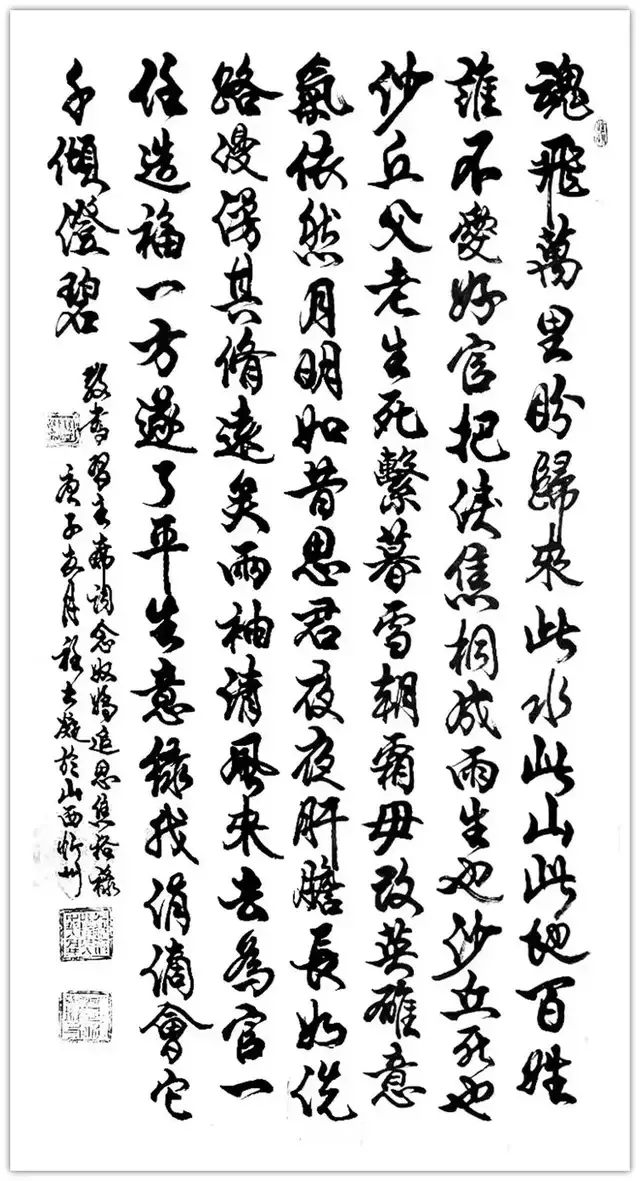 魂飛萬里盼歸來此水此山此地百姓
誰不愛好官把淚焦桐成雨生也沙丘死也
沙丘父老生死繫暮雪朝霜毋改英雄意
氣依然月明如昔思君夜夜肝膽長如洗
路漫漫其脩遠矣兩袖清風來去為官一
任造福一方遂了平生意綠我涓滴會它
千傾澄碧
敬書習主席詞念奴嬌追思焦裕祿
庚子月士凝於山西忻州